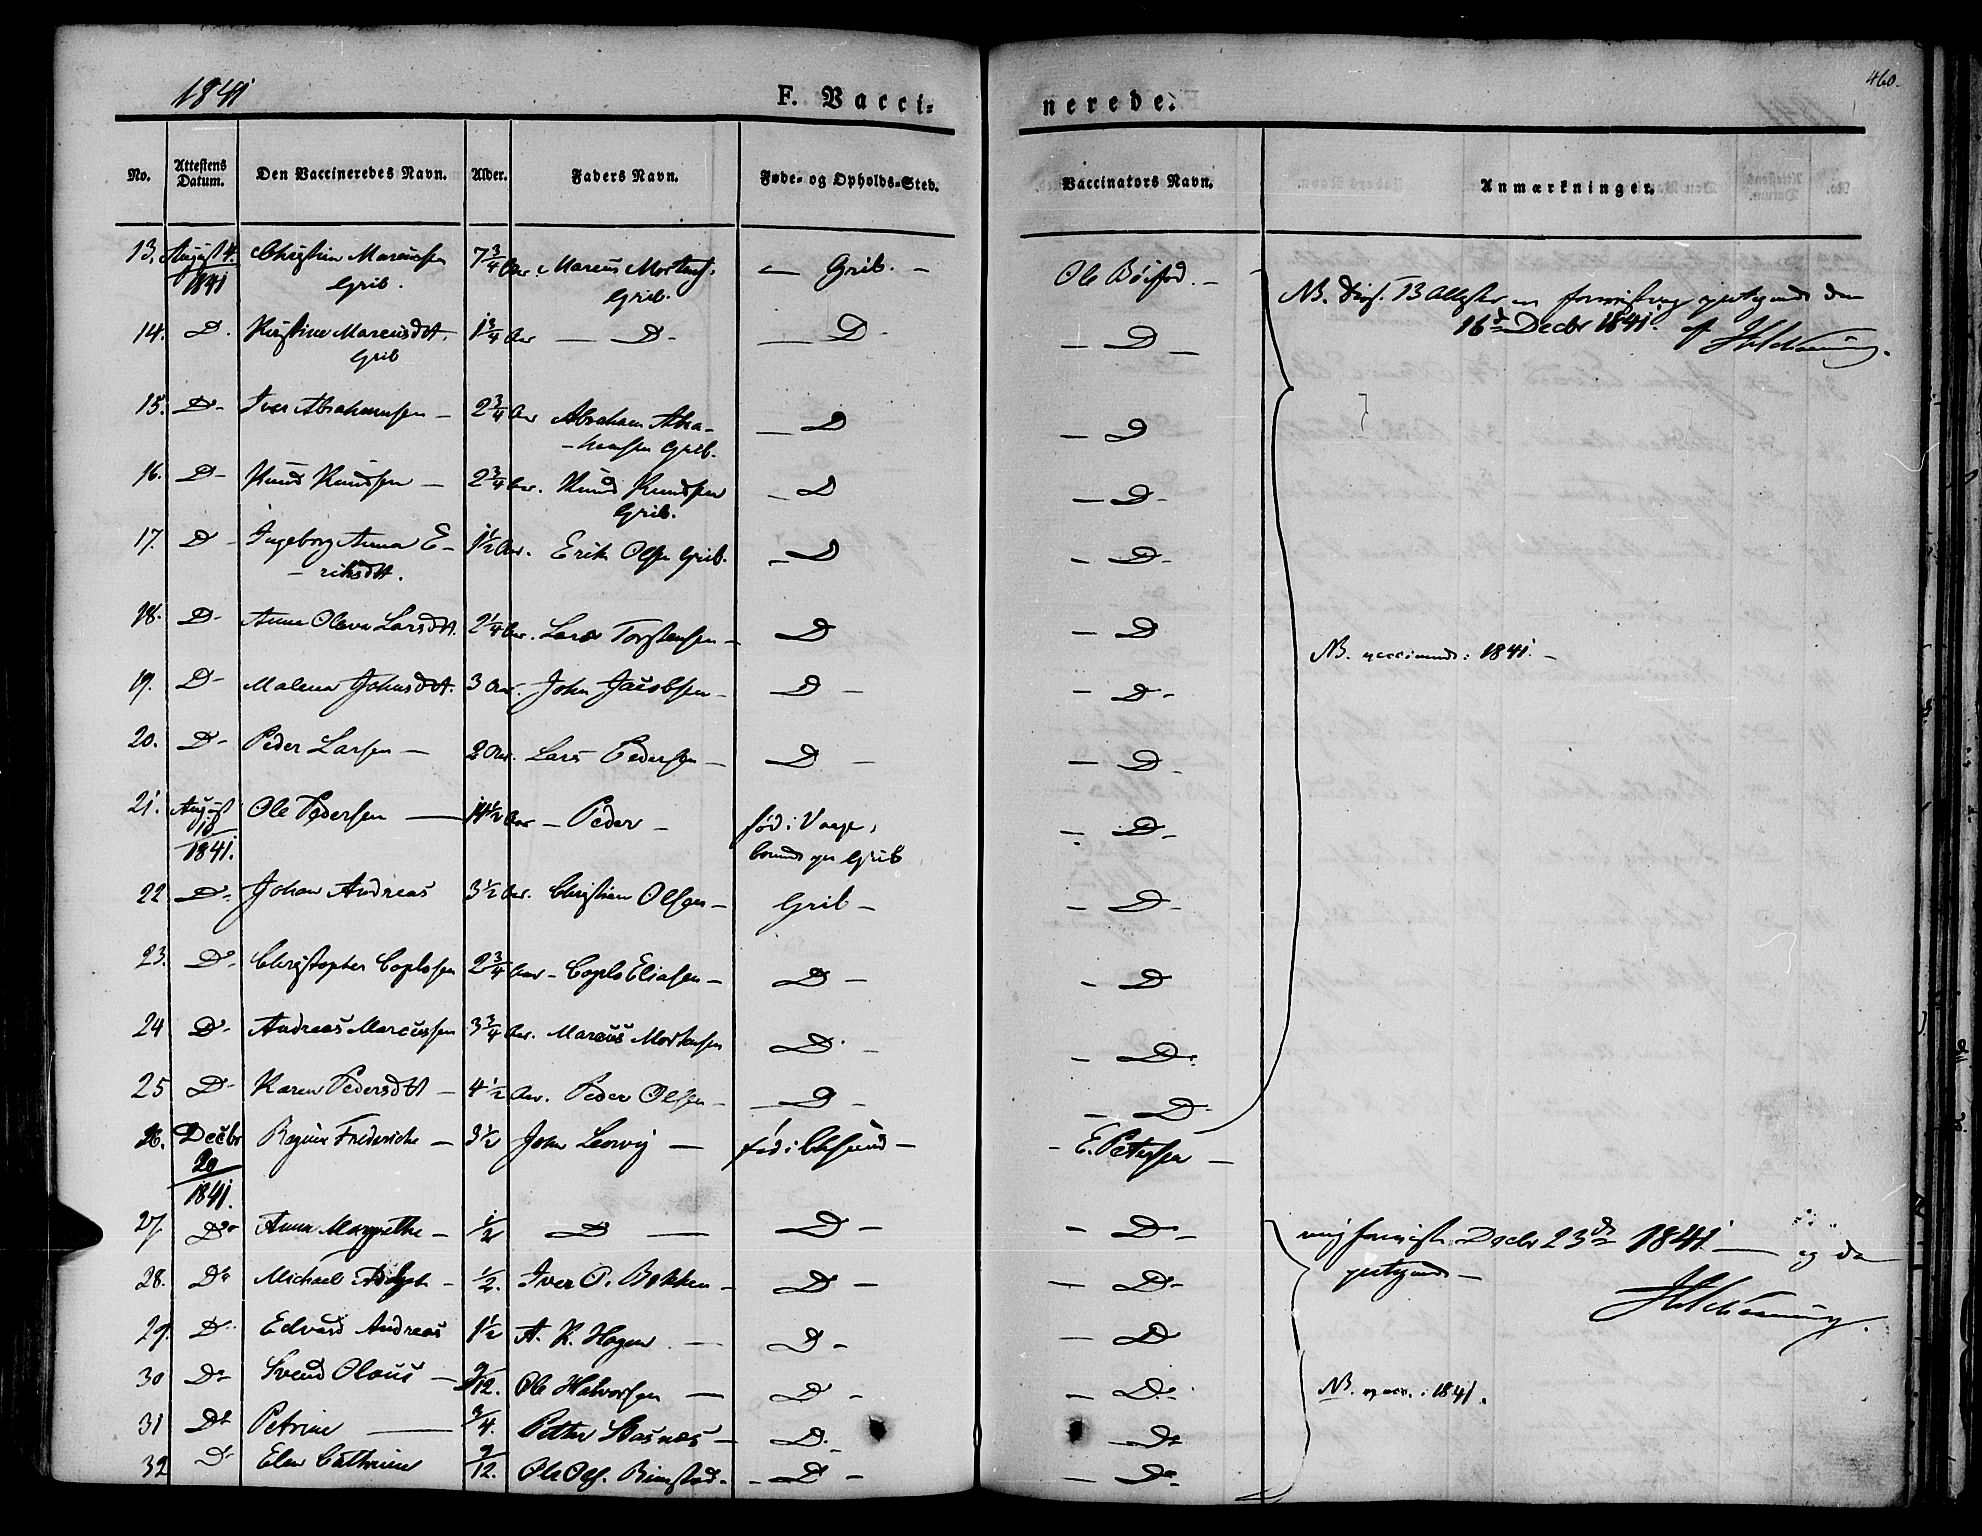 1841
F. Vacci-
nerede.
460.
No. Attestens Datum. Den Vaccineredes Navn. Alder. Faders Navn. Føde- og Opholds-Sted. Vaccinators Navn. Anmærkninger.
13. August 4. 1841 Christian Marcussen Grib. 7 3/4 Aar. Marcus Mortens. Grib. — Grib. — Ole Böistad. —
NB. 13 Attester en
16d Decbr 1841. af
14. D. Marcusdtt. Grib 1 3/4 Aar — D — — D - — D —
15. D- Iver Abrahamsen — 2 3/4 Aar Abraham Abra-
-hamsen Grib. — D — D
16. D- Knud Knudsen — 2 3/4 Aar. Knud Knudsen Grib. — D — D-
17. D- Ingeborg Anna E-
-riksdtt. 1 1/2 Aar. Erik Olsen Grib. — D — D-
18. D- Anna Oleva Larsdtt. 2 1/4 Aar. Lars Torstensen — D — D
NB. : 1841. —
19. D- Malena Johnsdtt. 3 Aar. John Jacobsen — D — — D-
20. D- Peder Larsen — 2 Aar. Lars Pedersen — D — — D-
21. August 18 1841. Ole Pedersen — 14 1/2 Aar — Peder — fød i
Grib — D-
22 D- Johan Andreas 3 1/2 Aar. Christian Olsen — Grib — — D-
23. D- Christopher Coplosen 2 3/4 Aar — Coplo Eliasen — D — — D
24 D- Andreas Marcussen 3 3/4 Aar. Marcus Mortensen D. — — D.
25 D- Karen Pedersdtt — 4 1/2 Aar. Peder Olsen — — D — — D-
26. Decbr 20 1841. Frederiche — 3 1/2 John — fød i — - E. Petersen —
27. Do Anna Margrethe — 1/2 D — D — — D-
Decbr 23d 1841 — og da
28. Do Michael — 1/2. Iver P. Bakken — D — — D-
29. D. Edvard Andreas 1 1/2 A. K. Hagen. — D - — D
30 D- Svend Olaus — 9/12. Ole Halvorsen — D - — D.-
NB. : 1841.
31 Do Petrine — 3/4. Petter — D. - — Do
32 D- Elen Cathrine 9/12. Ole Ols. — D — — Do